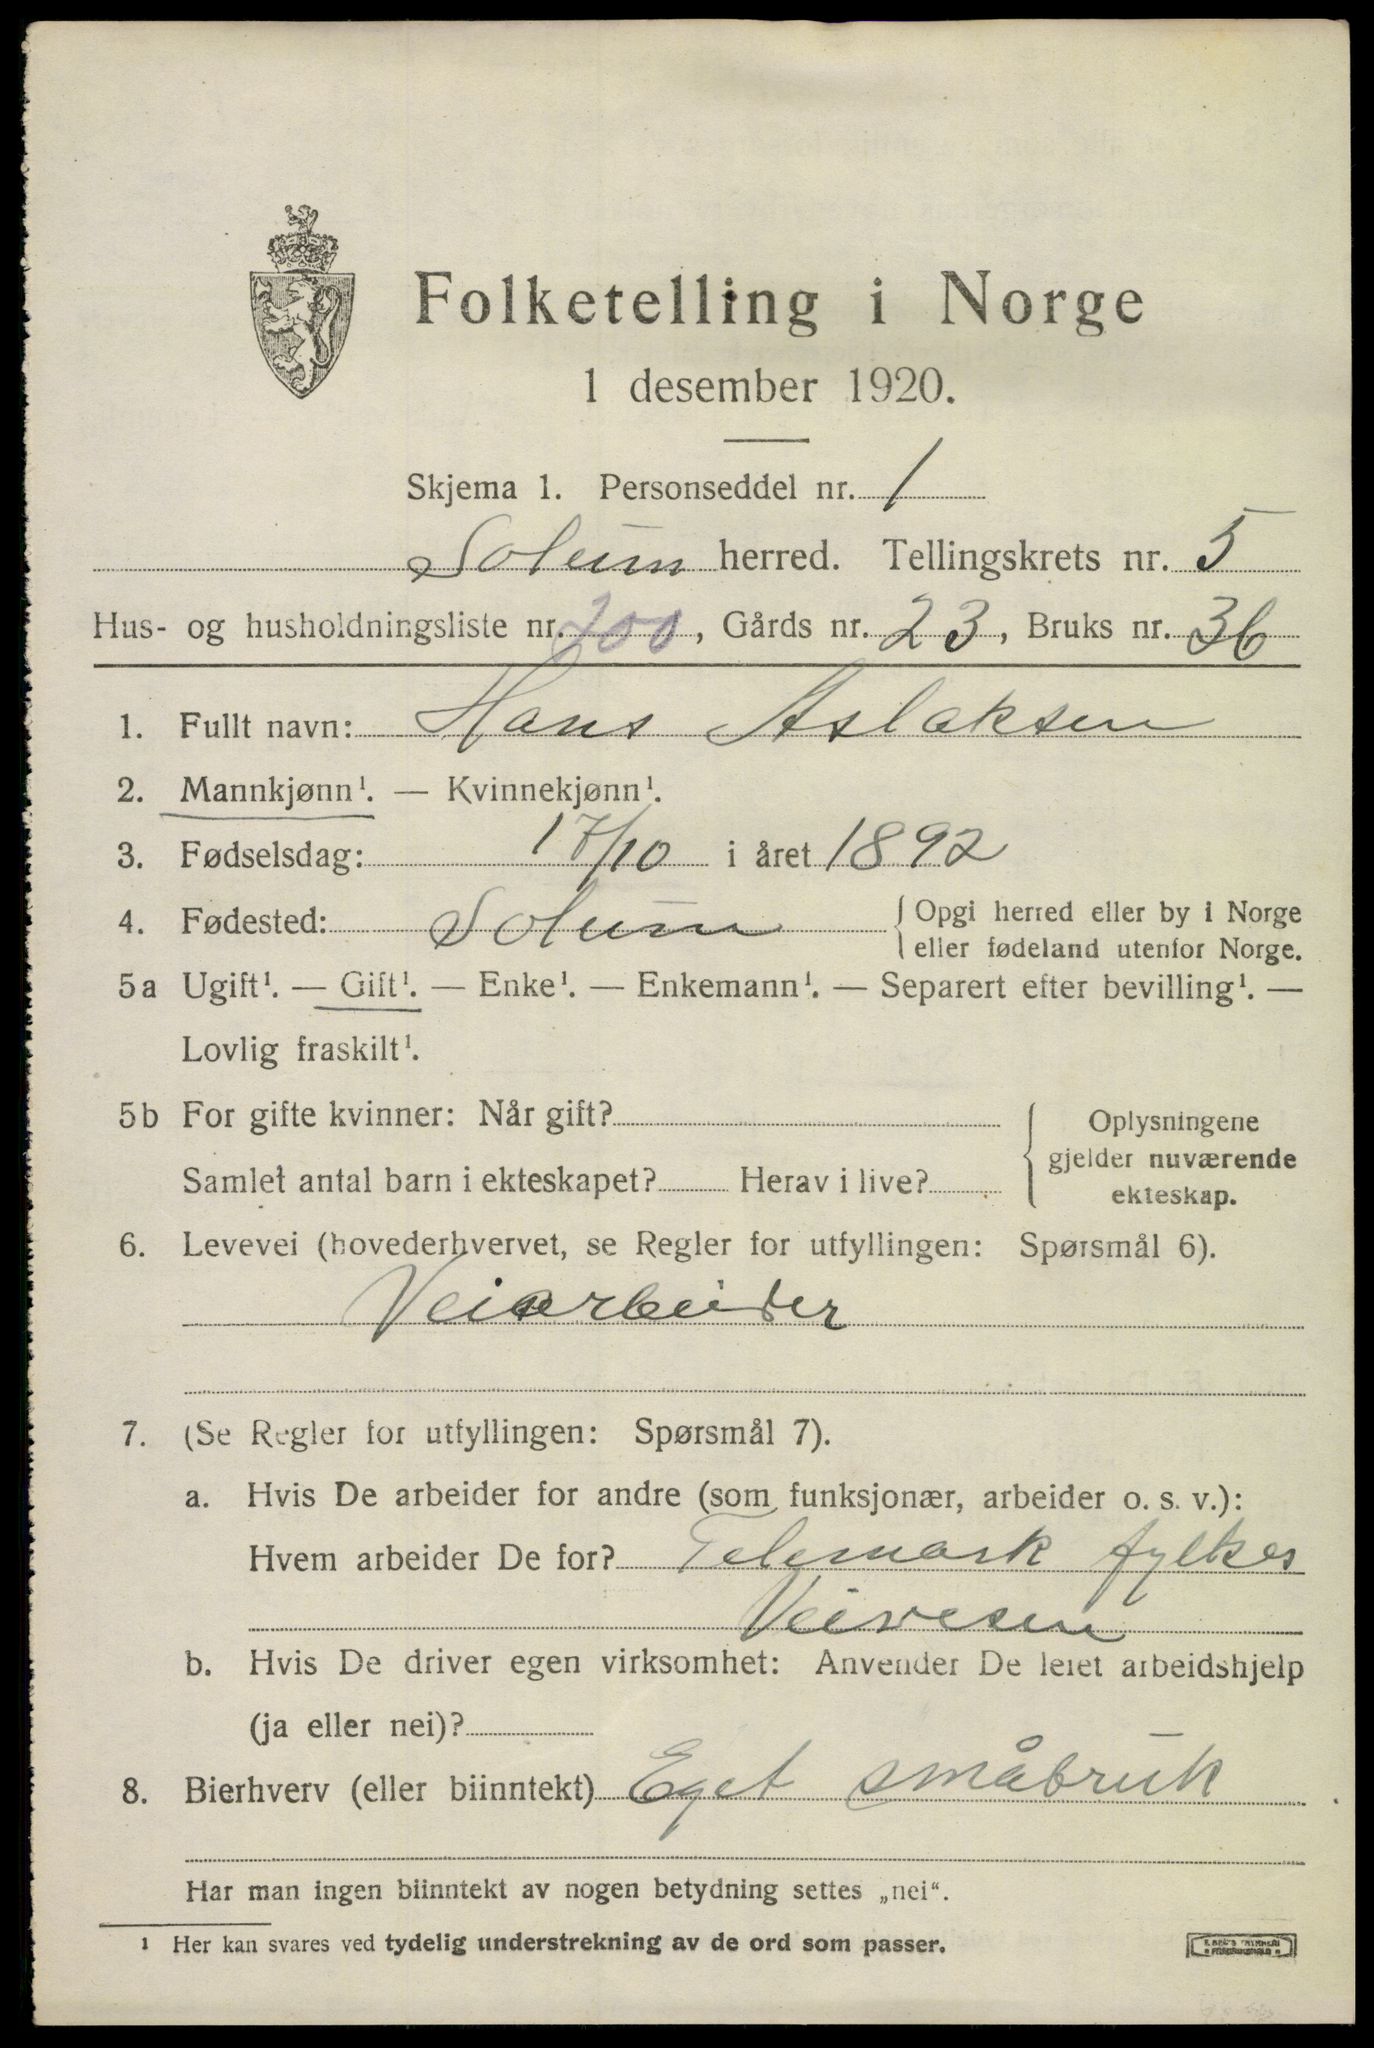 Folketelling i Norge
1 desember 1920.
Skjema 1. Personseddel nr. 1
Solum herred. Tellingskrets nr. 5
Hus- og husholdningsliste nr. 200, Gårds nr. 23, Bruks nr. 36
1. Fullt navn: Hans Aslaksen
2. Mannkjønn¹. — Kvinnekjønn¹.
3. Fødselsdag: 17/10 i året 1892
4. Fødested: Solum { Opgi herred eller by i Norge
eller fødeland utenfor Norge.
5a Ugift¹. — Gift¹. — Enke¹. — Enkemann¹. — Separert efter bevilling¹. —
Lovlig fraskilt¹.
5b For gifte kvinner: Når gift?
Samlet antal barn i ekteskapet? Herav i live?
Oplysningene
gjelder nuværende
ekteskap.
6. Levevei (hovederhvervet, se Regler for utfyllingen: Spørsmål 6).
Veiarbeider
7. (Se Regler for utfyllingen: Spørsmål 7).
a. Hvis De arbeider for andre (som funksjonær, arbeider o. s. v.):
Hvem arbeider De for? Telemark fylkes
Veivesen
b. Hvis De driver egen virksomhet: Anvender De leiet arbeidshjelp
(ja eller nei)?
8. Bierhverv (eller biinntekt) Eget småbruk
Har man ingen biinntekt av nogen betydning settes „nei“.
¹ Her kan svares ved tydelig understrekning av de ord som passer.